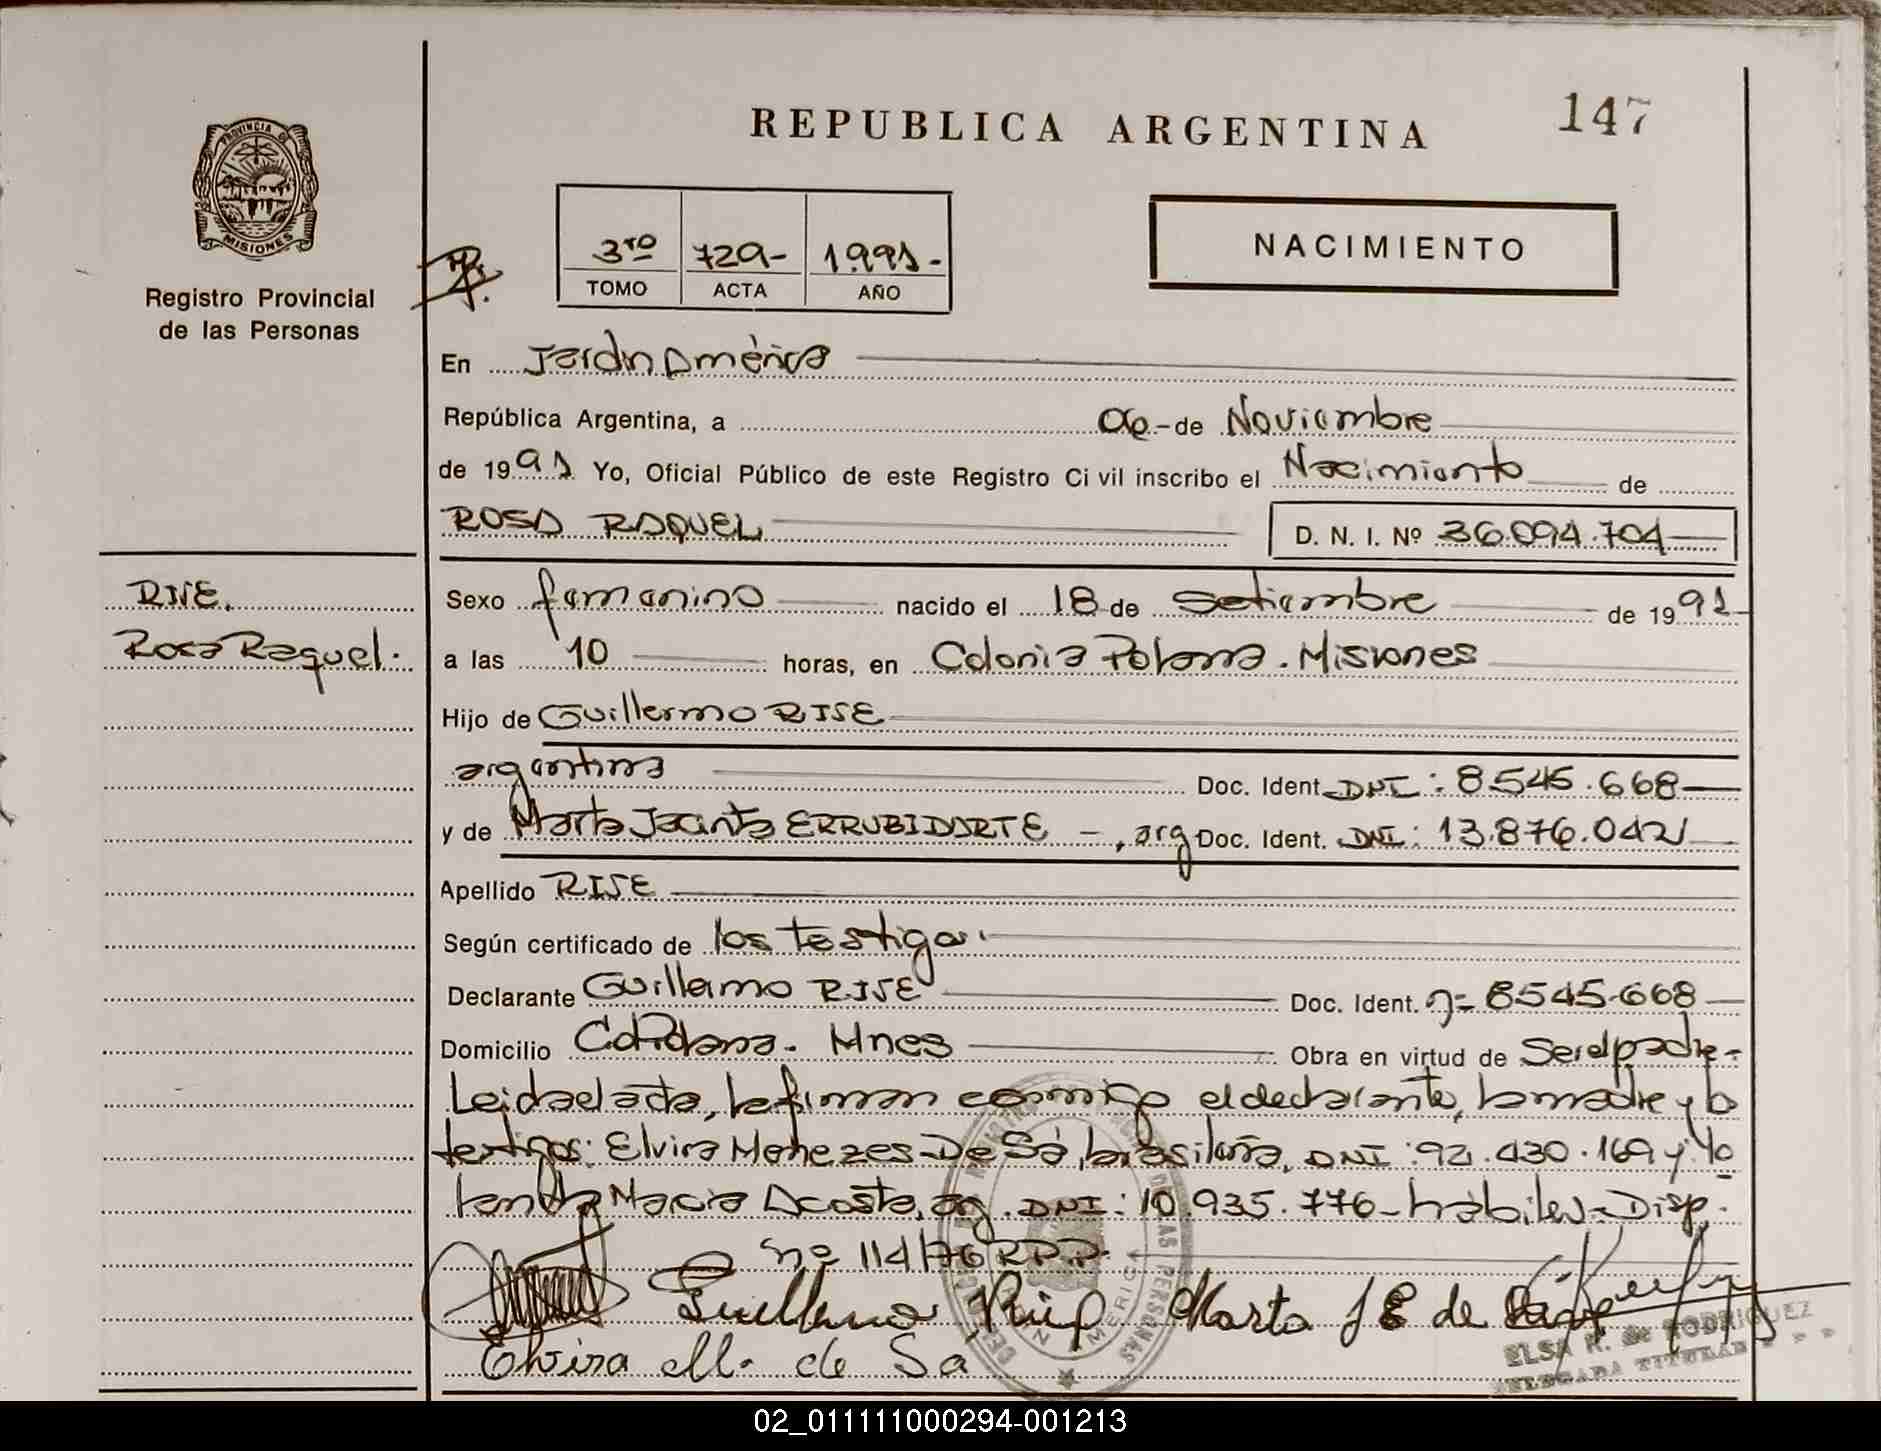 REPUBLICA ARGENTINA
147
PROVINCIA DE
MISIONES
Registro Provincial
de las Personas
3ro 729- 1991-
TOMO ACTA AÑO
NACIMIENTO
En Jardin América
República Argentina, a 06 - de Noviembre
de 1991 Yo, Oficial Público de este Registro Civil inscribo el Nacimiento de
ROSA RAQUEL
D. N. I. Nº 36.094.704
RISE.
Rosa Raquel.
Sexo femenino nacido el 18 de Setiembre de 1991
a las 10 horas, en Colonia Polana. Misiones
Hijo de Guillermo RISE
argentina Doc. Ident. DNI: 8.545.668
y de Marta Jacinta ERRUBIDARTE -, arg Doc. Ident. DNI: 13.876.042
Apellido RISE
Según certificado de los testigos.
Declarante Guillermo RISE Doc. Ident. 8.545.668
Domicilio Col Polana. Mnes Obra en virtud de Ser el padre-
Leida el acta, la firman conmigo el declarante, la madre y lo
testigos: Elvira Menezes De Sá, brasileña, DNI: 92.430.169 y Yo
landa Maria Acosta, arg. DNI: 10.935.776 - hábiles - Disp.
nº 114/76 RPP.
Guillermo Marta J E de
Elvira M. de Sa
ELSA R. de RODRIGUEZ
DELEGADA TITULAR
02_011111000294-001213